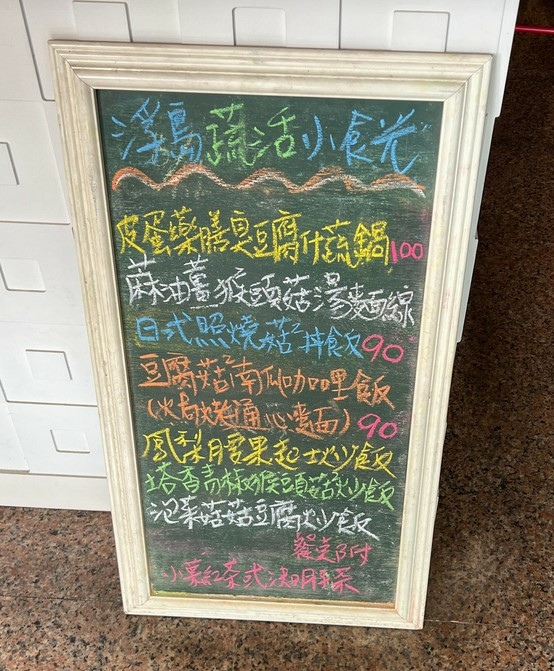 浮島蔬活小食光
皮蛋藥膳臭豆腐什蔬鍋100
麻油薑猴頭菇湯麵線
日式照燒菇菇丼飯90
豆腐菇菇南仙咖哩飯
(焗烤通心麵)90
鳳梨腰果起士炒飯
塔香青椒猴頭菇炒飯
泡菜菇菇豆腐炒飯
餐點附
小菓紅茶或決明